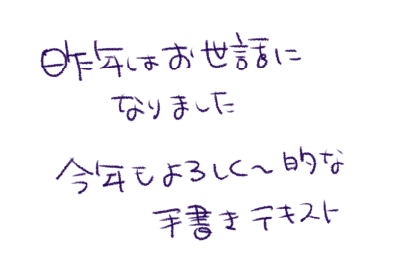 昨年はお世話に
なりました
今年もよろしく〜的な
手書きテキスト